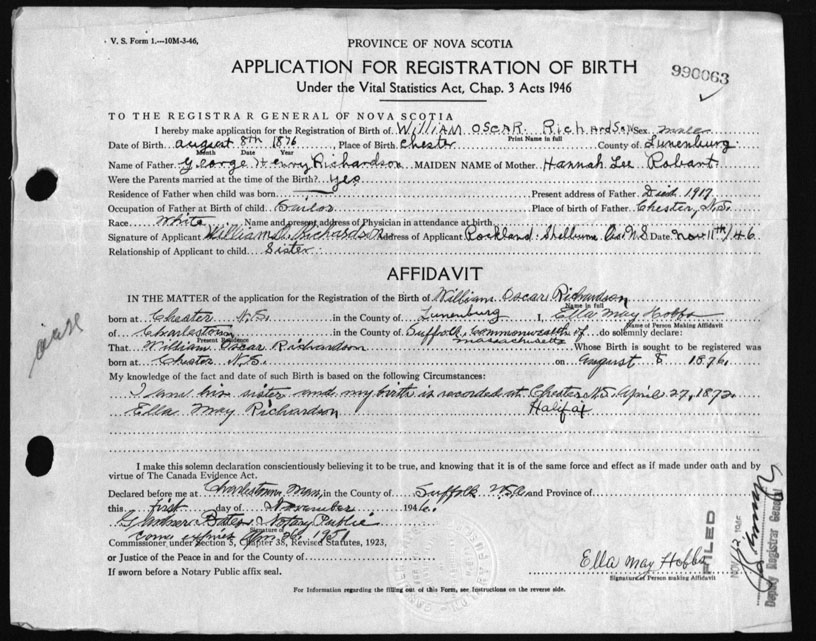 V. S. Form 1.—10M-3-46,
PROVINCE OF NOVA SCOTIA
APPLICATION FOR REGISTRATION OF BIRTH
990063
Under the Vital Statistics Act, Chap. 3 Acts 1946
TO THE REGISTRAR GENERAL OF NOVA SCOTIA
I hereby make application for the Registration of Birth of William Oscar Richardson Sex male
Print Name in full
Date of Birth august 8th 1876, Place of Birth Chester County of Lunenburg
Month Date Year
Name of Father George Henry Richardson MAIDEN NAME of Mother Hannah Lee Robart
Were the Parents married at the time of the Birth? yes
Residence of Father when child was born Present address of Father Died 1917.
Occupation of Father at Birth of child Place of birth of Father Chester, N.S.
Race White Name and present address of Physician in attendance at birth
Signature of Applicant William O. Richardson Address of Applicant Rockland: Shelburne Co. N.S Date nov 11th/46
Relationship of Applicant to child Sister
AFFIDAVIT
IN THE MATTER of the application for the Registration of the Birth of William Oscar Richardson
Name in full
born at Chester N.S. in the County of Lunenburg I, Ella May Hobbs
Name of Person Making Affidavit
of Charlestown in the County of Suffolk, Commonwealth of Massachusetts do solemnly declare:
Present Residence
That William Oscar Richardson Whose Birth is sought to be registered was
born at Chester N.S. on august 8 1876.
My knowledge of the fact and date of such Birth is based on the following Circumstances:
I am his sister and my birth is recorded at Chester N.S. April 27, 1872.
Ella May Richardson Halifax
I make this solemn declaration conscientiously believing it to be true, and knowing that it is of the same force and effect as if made under oath and by
virtue of The Canada Evidence Act.
Declared before me at Charlestown Mass, in the County of Suffolk USA and Province of
this first day of November 1946.
Gardner Bates Notary Public
Signature of
com expires 1951
Commissioner under Section 5, Chapter 38, Revised Statutes, 1923,
or Justice of the Peace in and for the County of
If sworn before a Notary Public affix seal.
Ella May Hobbs
Signature of Person making Affidavit
For Information regarding the filling out of this Form, see Instructions on the reverse side.
FILED
NOV 12 1946
Deputy Registrar General